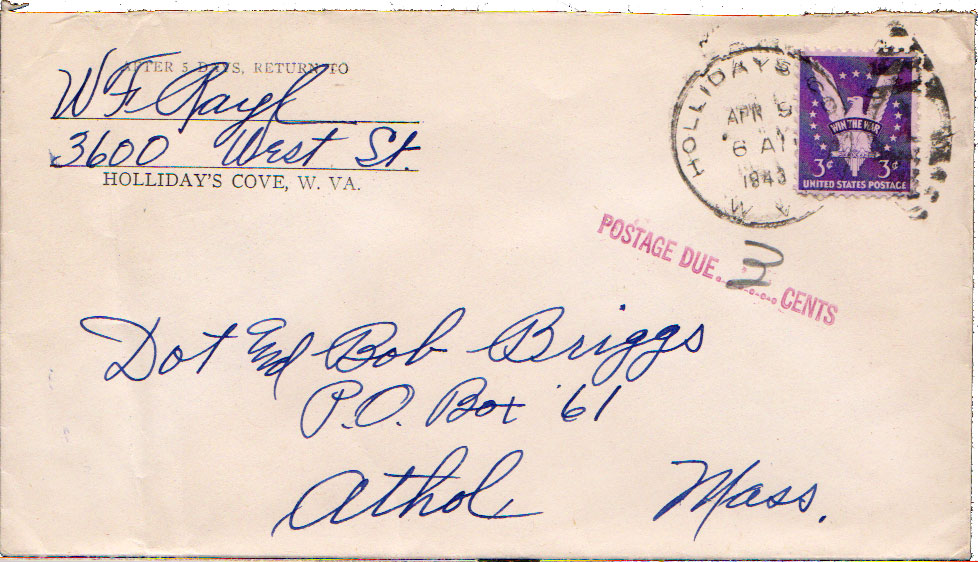 AFTER 5 DAYS, RETURN TO
W F Rayl
3600 West St.
HOLLIDAY'S COVE, W. VA.
HOLLIDAYS CO
APR 9
6 AM
1943
W VA
WIN THE WAR
3¢ 3¢
UNITED STATES POSTAGE
POSTAGE DUE 3 CENTS
Dot End Bob Briggs
P.O. Box 61
Athol Mass.